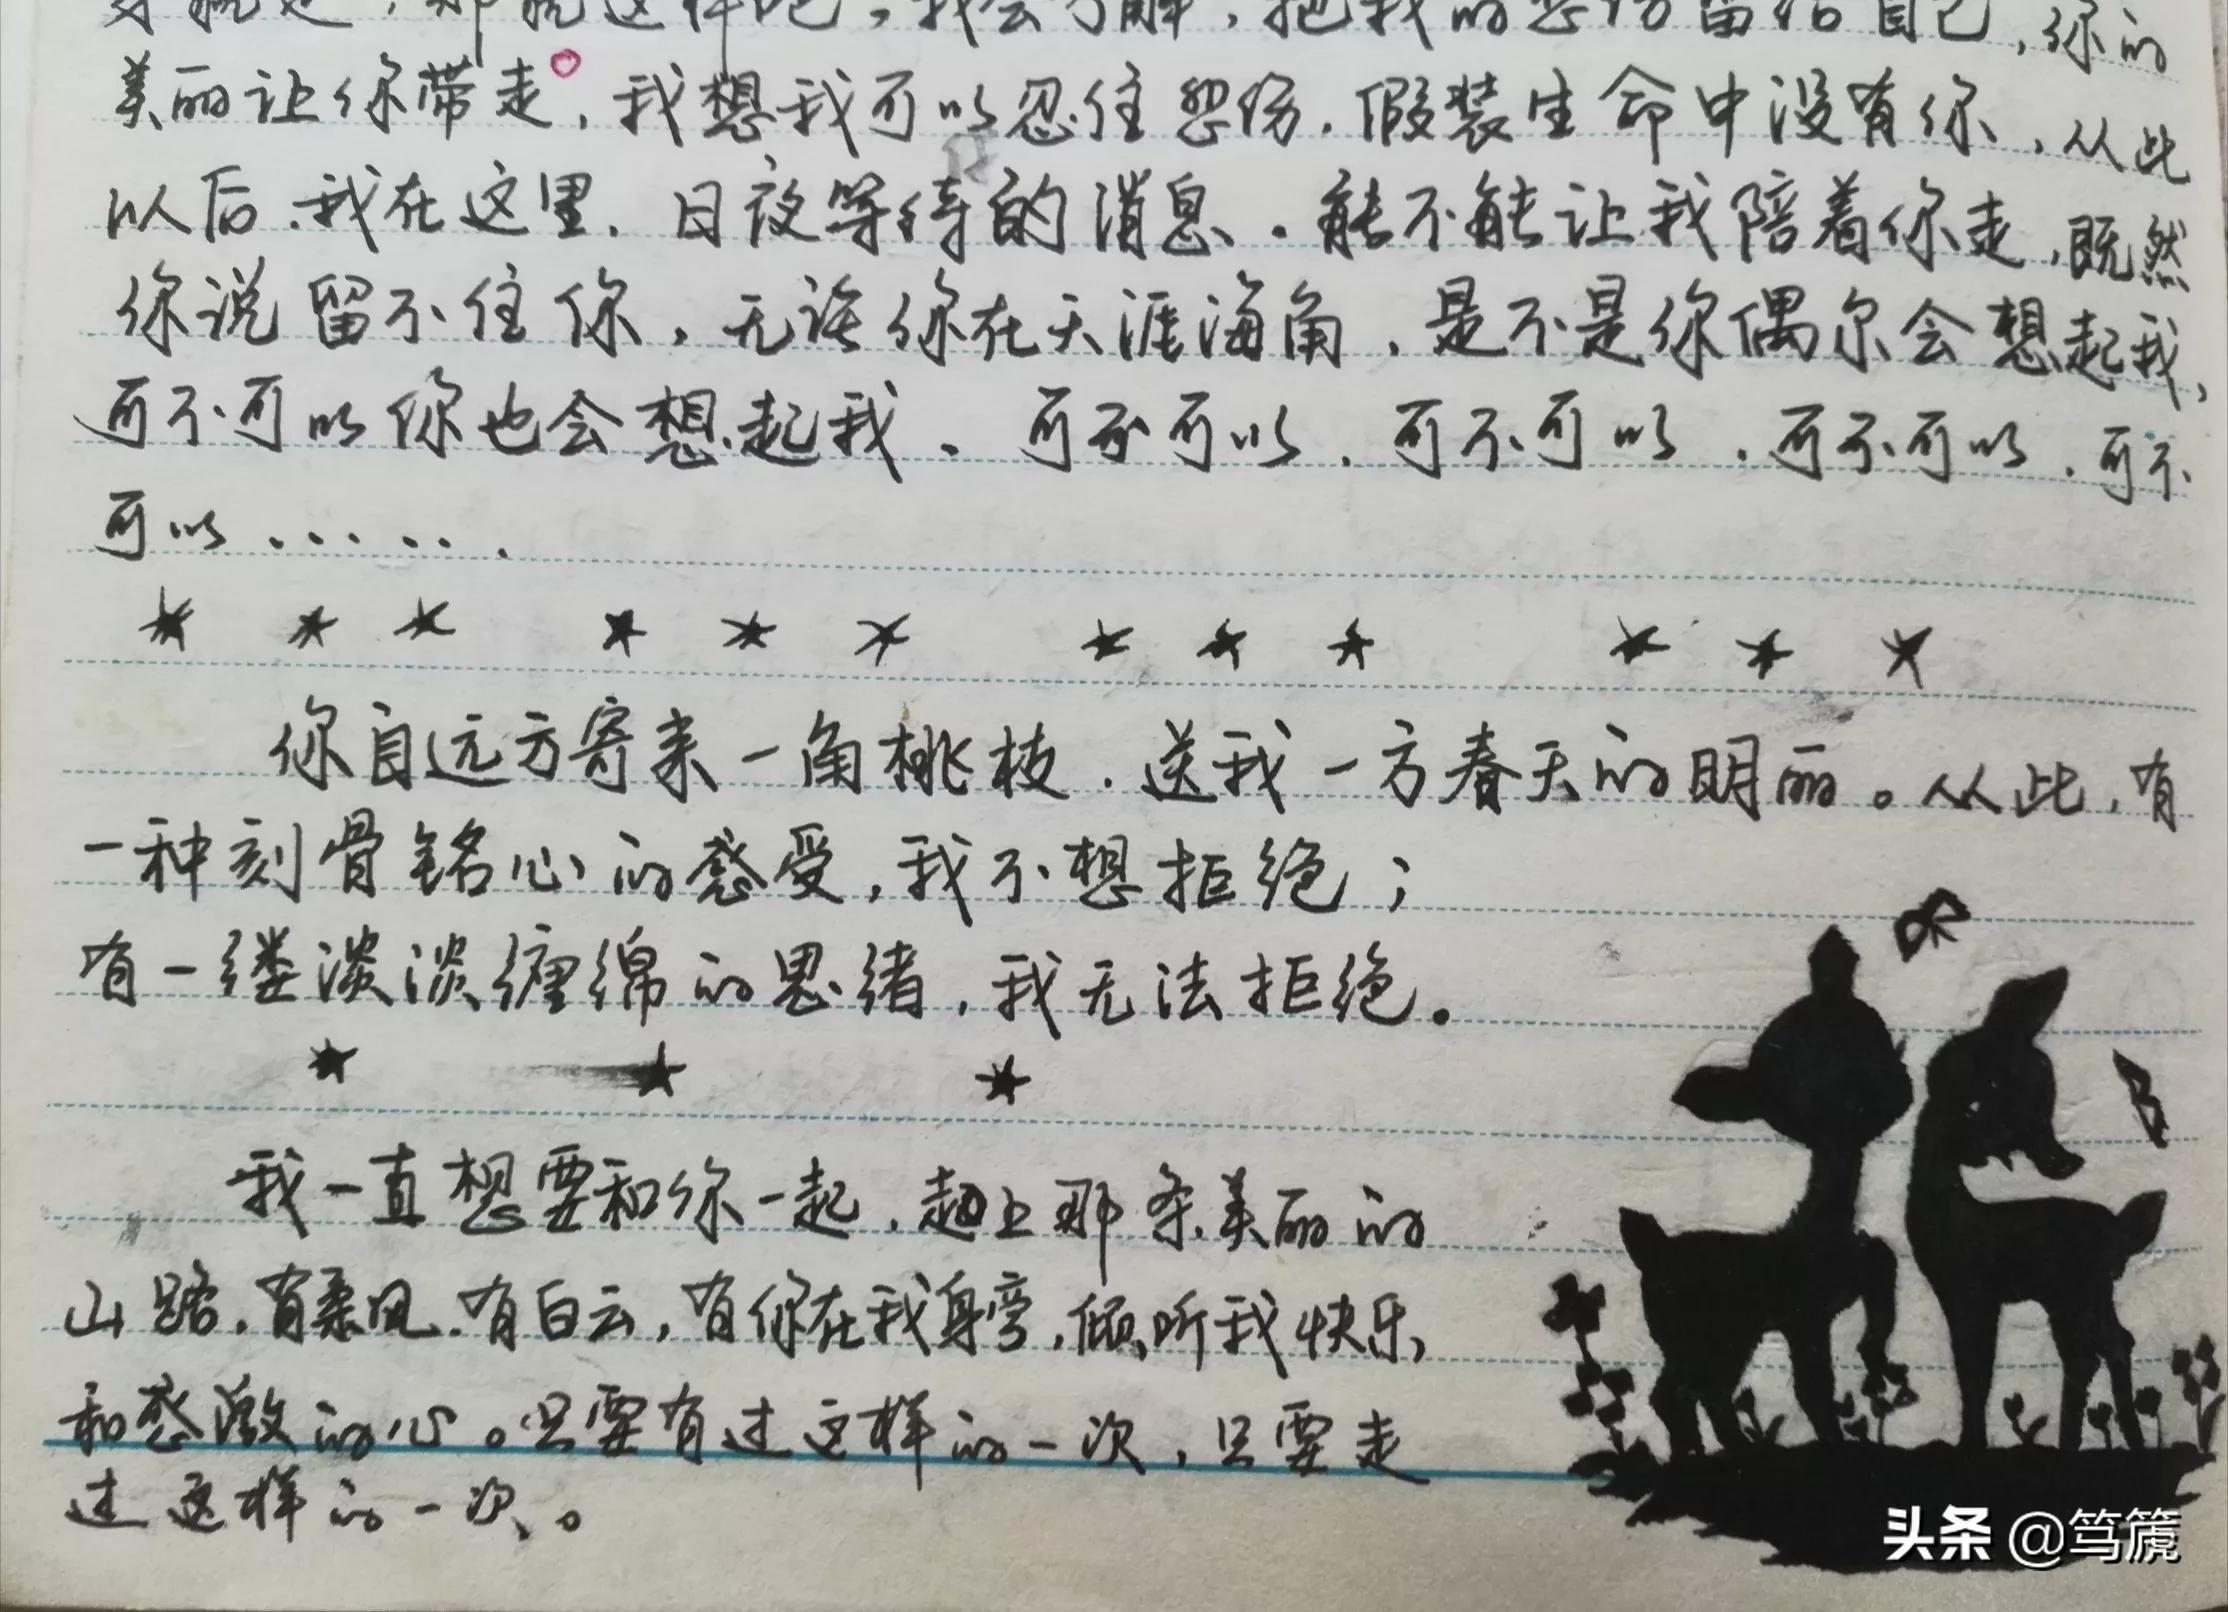 那就这样吧,我会了解,把我的悲伤留给自己,你的
美丽让你带走,我想我可以忍住悲伤,假装生命中没有你,从此
以后,我在这里,日夜等待的消息。能不能让我陪着你走,既然
你说留不住你,无论你在天涯海角,是不是你偶尔会想起我,
可不可以你也会想起我。可不可以,可不可以,可不可以,可不
可以......
★ ★ ★ ★ ★ ★ ★ ★ ★ ★ ★ ★
你自远方寄来一角桃枝,送我一方春天的明丽。从此,有
一种刻骨铭心的感受,我不想拒绝;
有一缕淡淡缠绵的思绪,我无法拒绝。
★ ★ ★
我一直想要和你一起,走上那条美丽的
山路,有柔风,有白云,有你在我身旁,倾听我快乐
和感激的心。只要有过这样的一次,只要走
过这样的一次。
头条 @笃篪